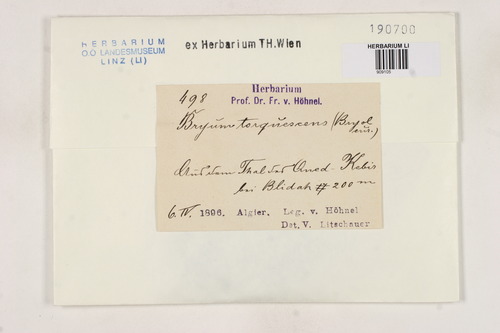 HERBARIUM
O.Ö LANDESMUSEUM
LINZ (LI)
ex Herbarium TH.Wien
190700
HERBARIUM LI
Herbarium
Prof. Dr. Fr. v. Höhnel.
498
Bryum torquescens
Aus dem Thal des Oued-Kebir
bei Blidah # 200 m
6. IV. 1896. Algier. Leg. v. Höhnel
Det. V. Litschauer